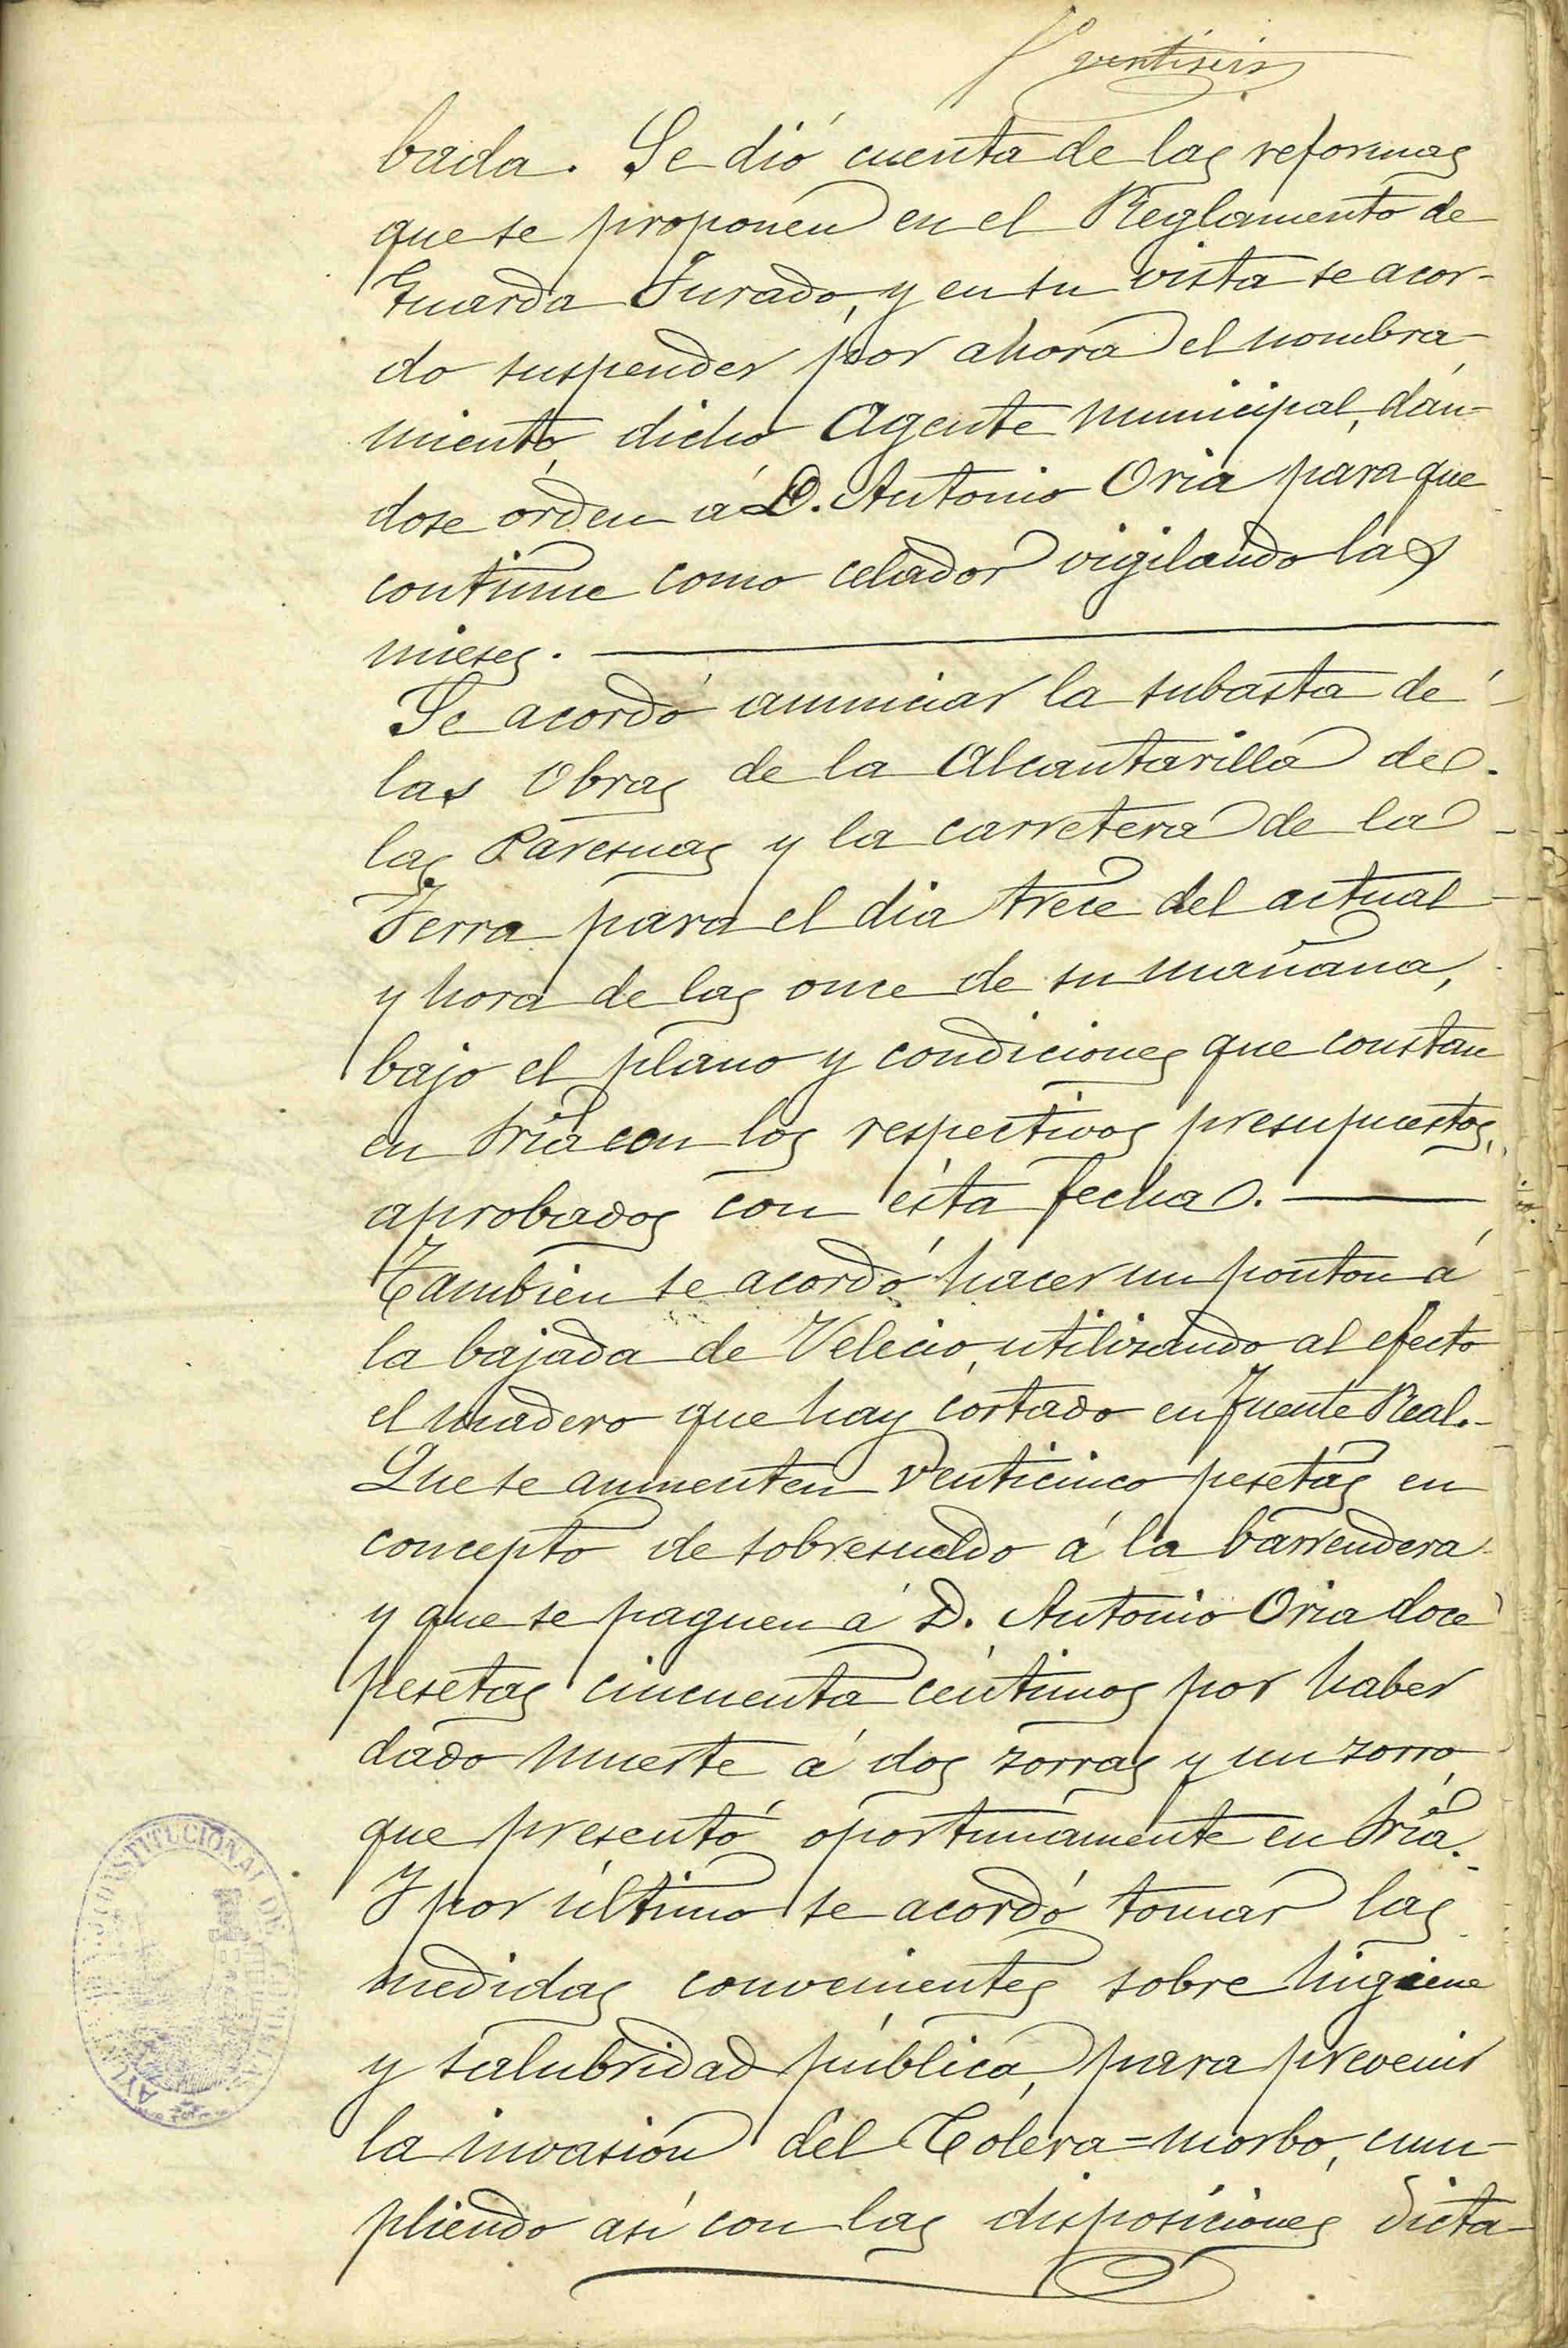 ventiseis
bada. Se dió cuenta de las reformas
que se proponen en el Reglamento de
Guarda Jurado, y en su vista se acor-
do suspender por ahora el nombra-
miento dicho Agente municipal, dán-
dose órden á D. Antonio Oria para que
continue como celador vigilando las
mieses.
Se acordó anunciar la subasta de
las Obras de la Alcantarilla de
las y la carretera de la
Serra para el dia trece del actual
y hora de las once de su mañana,
bajo el plano y condiciones que constan
en Sria con los respectivos presupuestos,
aprobados con ésta fecha.
Tambien se acordó hacer un ponton á
la bajada de Velecio, utilizando al efecto
el madero que hay cortado en Fuente Real.-
Que se aumenten venticinco pesetas en
concepto de sobresueldo á la barrendera
y que se paguen á D. Antonio Oria doce
pesetas cincuenta céntimos por haber
dado muerte á dos zorras y un zorro,
que presentó oportunamente en Sria.
Y por último se acordó tomar las
medidas convenientes sobre higiene
y salubridad pública, para prevenir
la invasión del Cólera=morbo, cum-
pliendo así con las disposiciones dicta-
CONSTITUCIONAL DE